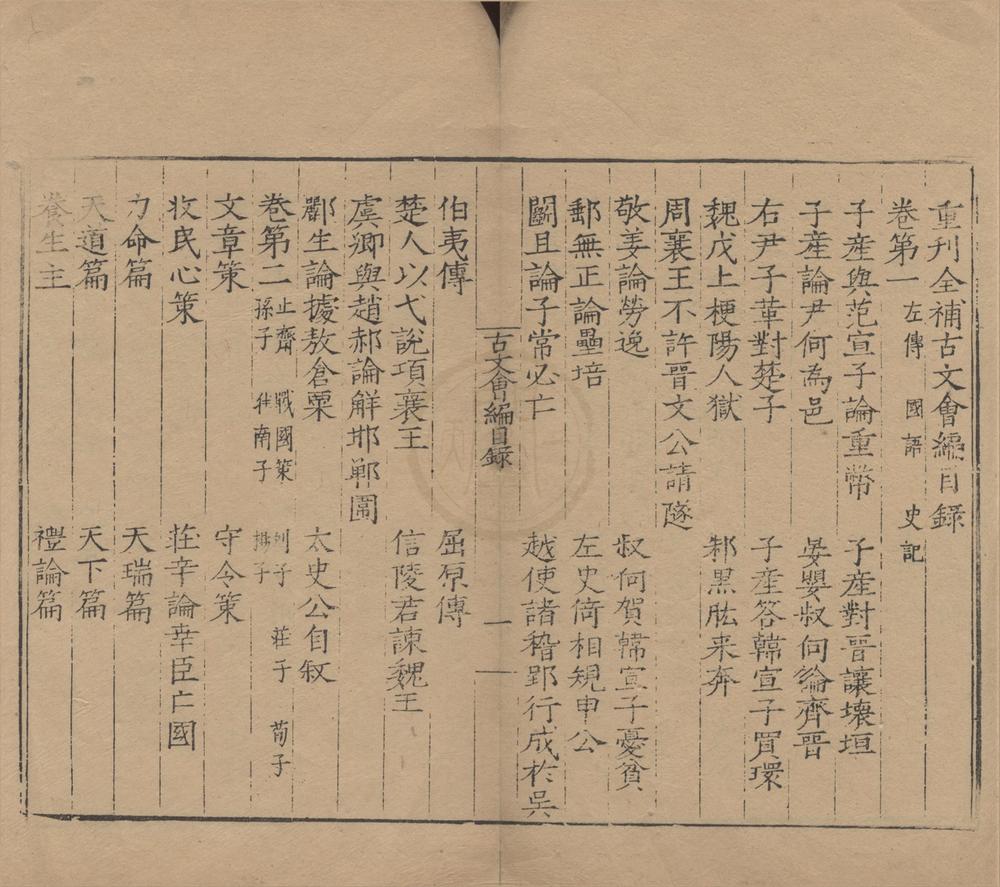 重刊全補古文會編目錄
卷第一 左傳 國語 史記
子產與范宣子論重幣 子產對晉讓壞垣
子產論尹何為邑 晏嬰叔向論齊晉
右尹子革對楚子 子產答韓宣子買環
魏戊上梗陽人獄 邾黑肱来奔
周襄王不許晉文公請隧
敬姜論勞逸 叔向賀韓宣子憂貧
郵無正論壘培 左史倚相規申公
鬬且論子常必亡 越使諸稽郢行成於吳
古文會編目錄 一
伯夷傳 屈原傳
楚人以弋說項襄王 信陵君諫魏王
虞卿與趙郝論解邯鄲圍
酈生論據敖倉粟 太史公自敘
卷第二 止齋 戰國策 列子 莊子 荀子
孫子 淮南子
文章策 守令策
收民心策 莊辛論幸臣亡國
力命篇 天瑞篇
天道篇 天下篇
養生主 禮論篇